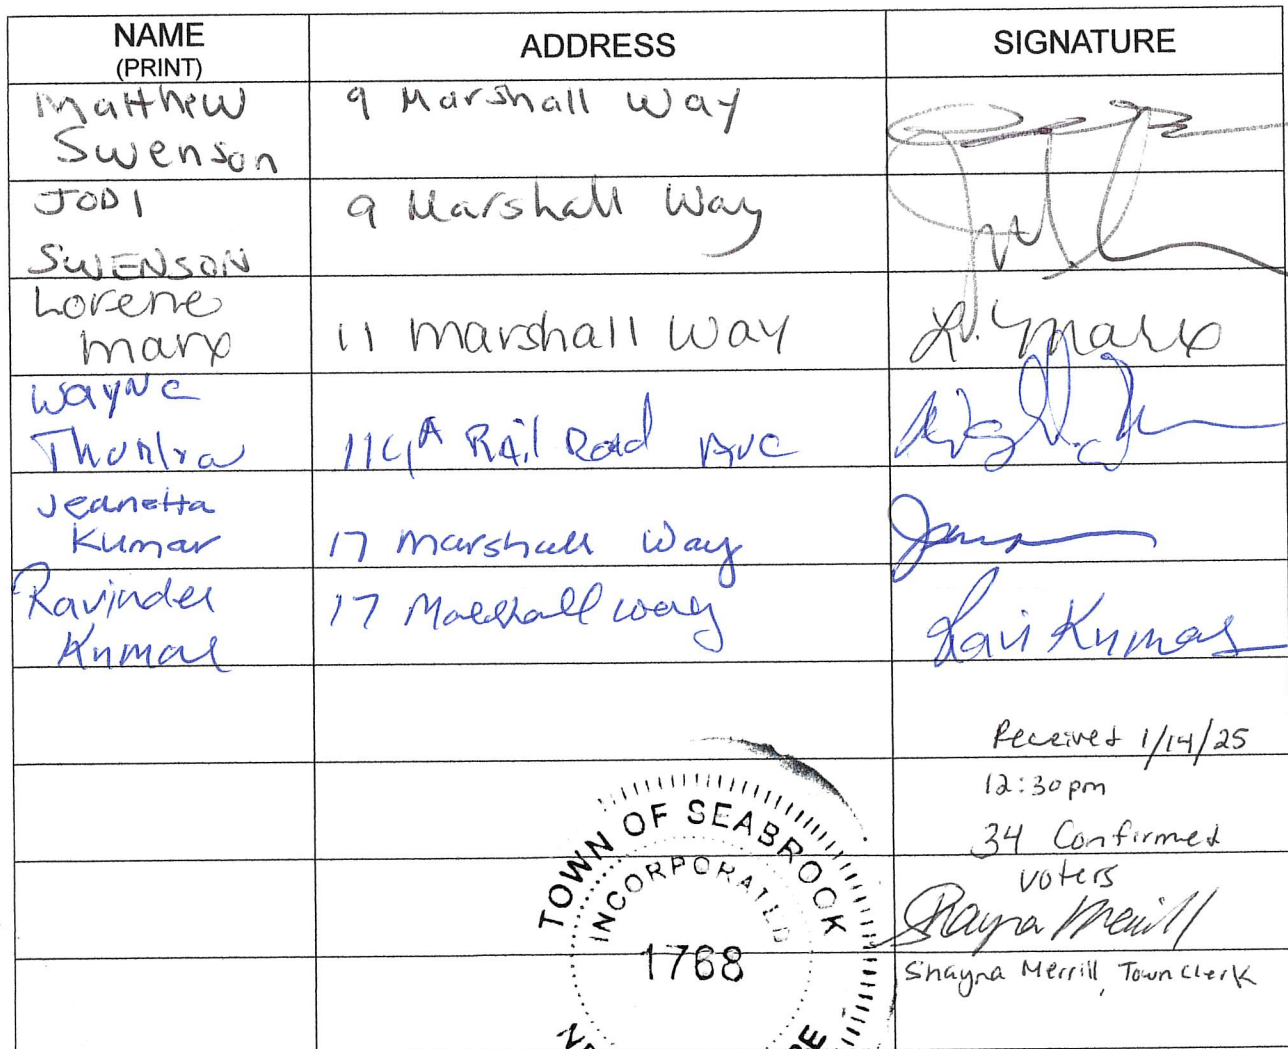 NAME ADDRESS SIGNATURE
(PRINT)
Matthew 9 Marshall Way
Swenson
JODI 9 Marshall Way
SWENSON
Lorene
Marx 11 Marshall Way L. Marx
Wayne
114A Rail Road Ave
Jeanetta
Kumar 17 Marshall Way
Ravinder 17 Marshall way
Kumar Ravi Kumar
Received 1/14/25
12:30pm
34 Confirmed
voters
Shayna Merrill
Shayna Merrill, Town Clerk
TOWN OF SEABROOK
INCORPORATED
1768